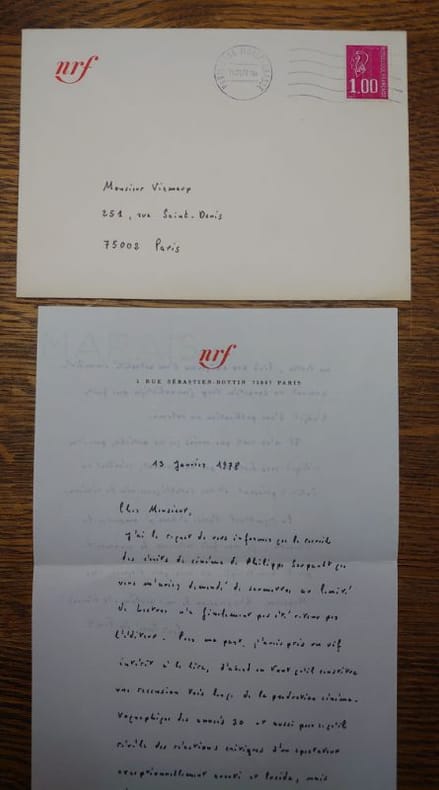 nrf
1.00
Monsieur Viemarp
251, rue Saint-Denis
75002 Paris
nrf
5 RUE SÉBASTIEN-BOTTIN 75007 PARIS
13 janvier 1978
Cher Monsieur,
j'ai le regret de vous informer que le recueil
des écrits de cinéma de Philippe Soupault que
vous m'aviez demandé de soumettre au Comité
de Lecture n'a finalement pas été retenu par
l'éditeur. Pour ma part, j'avais pris un vif
intérêt à le lire, d'abord en tant qu'il constitue
une recension très large de la production cinéma-
tographique des années 30 et aussi parce qu'il
révèle des réactions critiques d'un spectateur
exceptionnellement ouvert et lucide, mais